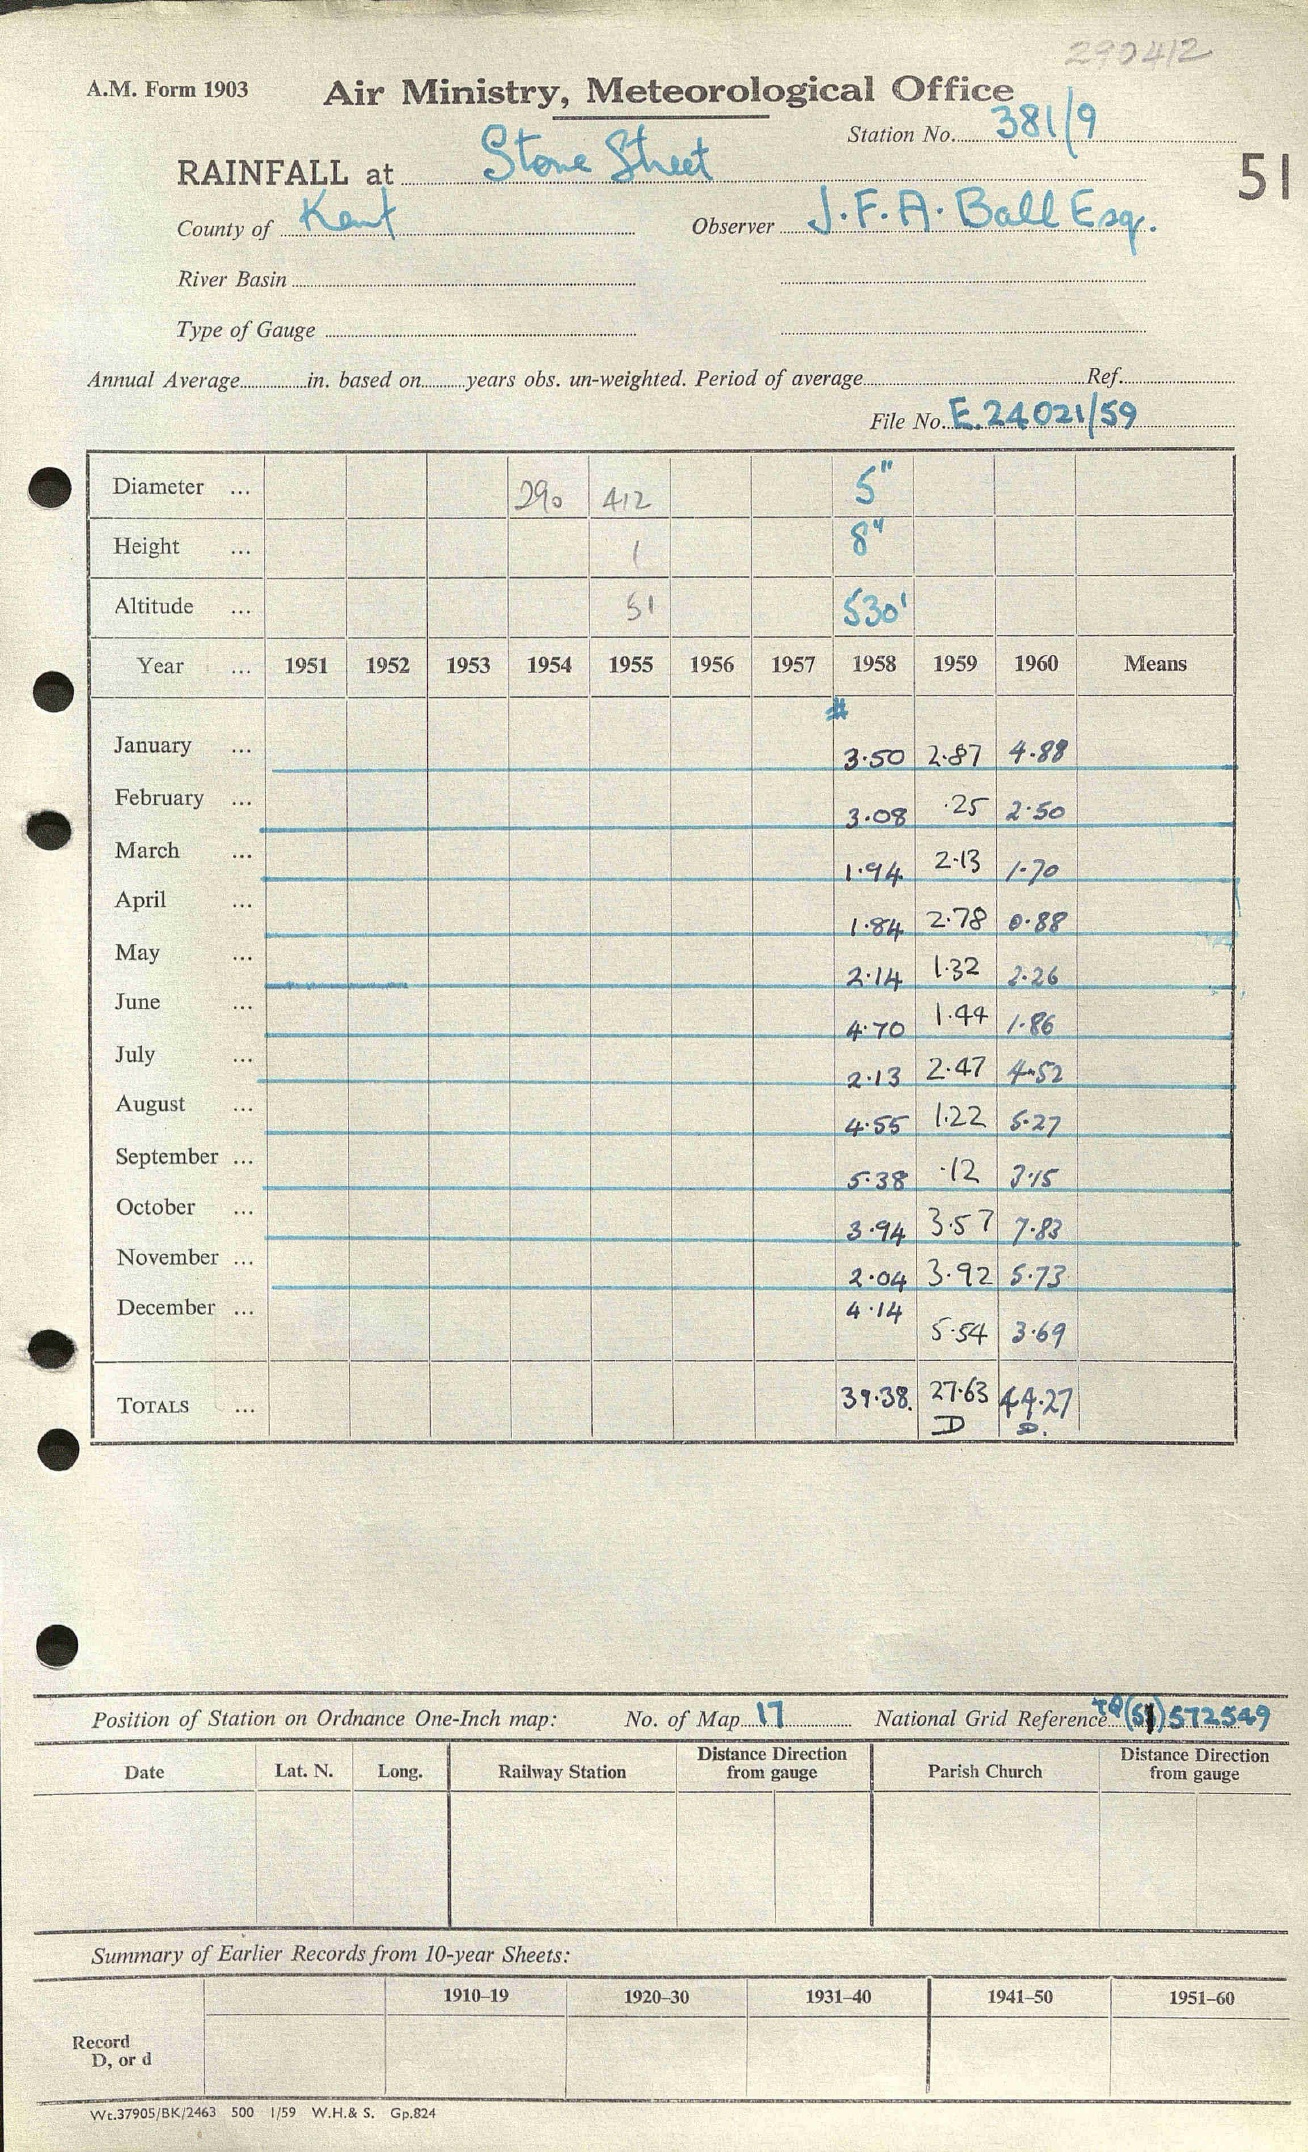 290412
A.M. Form 1903 Air Ministry, Meteorological Office
Station No. 381/9
RAINFALL at Stone Street
51
County of Kent Observer J.F.A. Ball Esq.
River Basin
Type of Gauge
Annual Average in. based on years obs. un-weighted. Period of average Ref.
File No. E.24021/59
Diameter ... 290 412 5"
Height ... 1 8"
Altitude ... 51 530'
Year ... 1951 1952 1953 1954 1955 1956 1957 1958 1959 1960 Means
#
January ... 3.50 2.87 4.88
February ... 3.08 .25 2.50
March ... 1.94 2.13 1.70
April ... 1.84 2.78 0.88
May ... 2.14 1.32 2.26
June ... 4.70 1.44 1.86
July ... 2.13 2.47 4.52
August ... 4.55 1.22 5.27
September ... 5.38 .12 3.15
October ... 3.94 3.57 7.83
November ... 2.04 3.92 5.73
December ... 4.14 5.54 3.69
TOTALS ... 39.38. 27.63 44.27
D D.
Position of Station on Ordnance One-Inch map: No. of Map 17 National Grid Reference TQ(51)572549
Date Lat. N. Long. Railway Station Distance Direction from gauge Parish Church Distance Direction from gauge
Summary of Earlier Records from 10-year Sheets:
1910–19 1920–30 1931–40 1941–50 1951–60
Record
D, or d
Wt.37905/BK/2463 500 1/59 W.H.& S. Gp.824